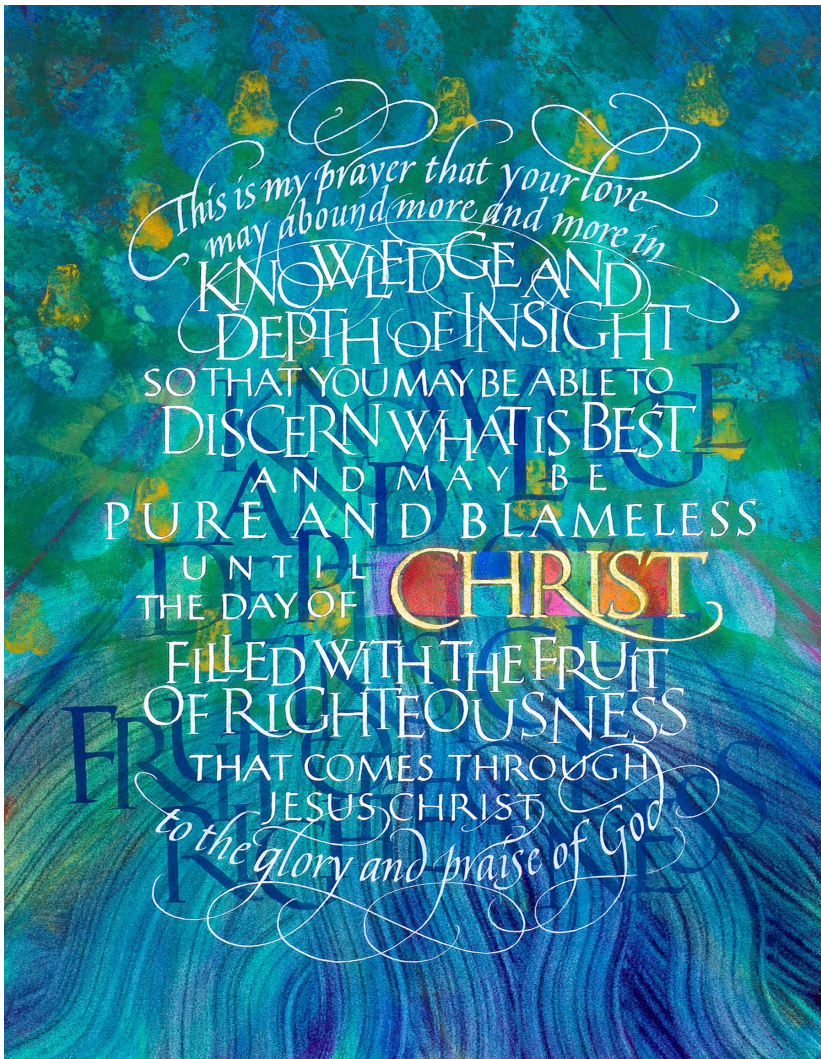 This is my prayer that your love
may abound more and more in
KNOWLEDGE AND
DEPTH OF INSIGHT
SO THAT YOU MAY BE ABLE TO
DISCERN WHAT IS BEST
AND MAY BE
PURE AND BLAMELESS
UNTIL
THE DAY OF CHRIST
FILLED WITH THE FRUIT
OF RIGHTEOUSNESS
THAT COMES THROUGH
JESUS CHRIST
to the glory and praise of God
KNOWLEDGE
AND
DEPTH OF
INSIGHT
FRUIT OF
RIGHTEOUSNESS